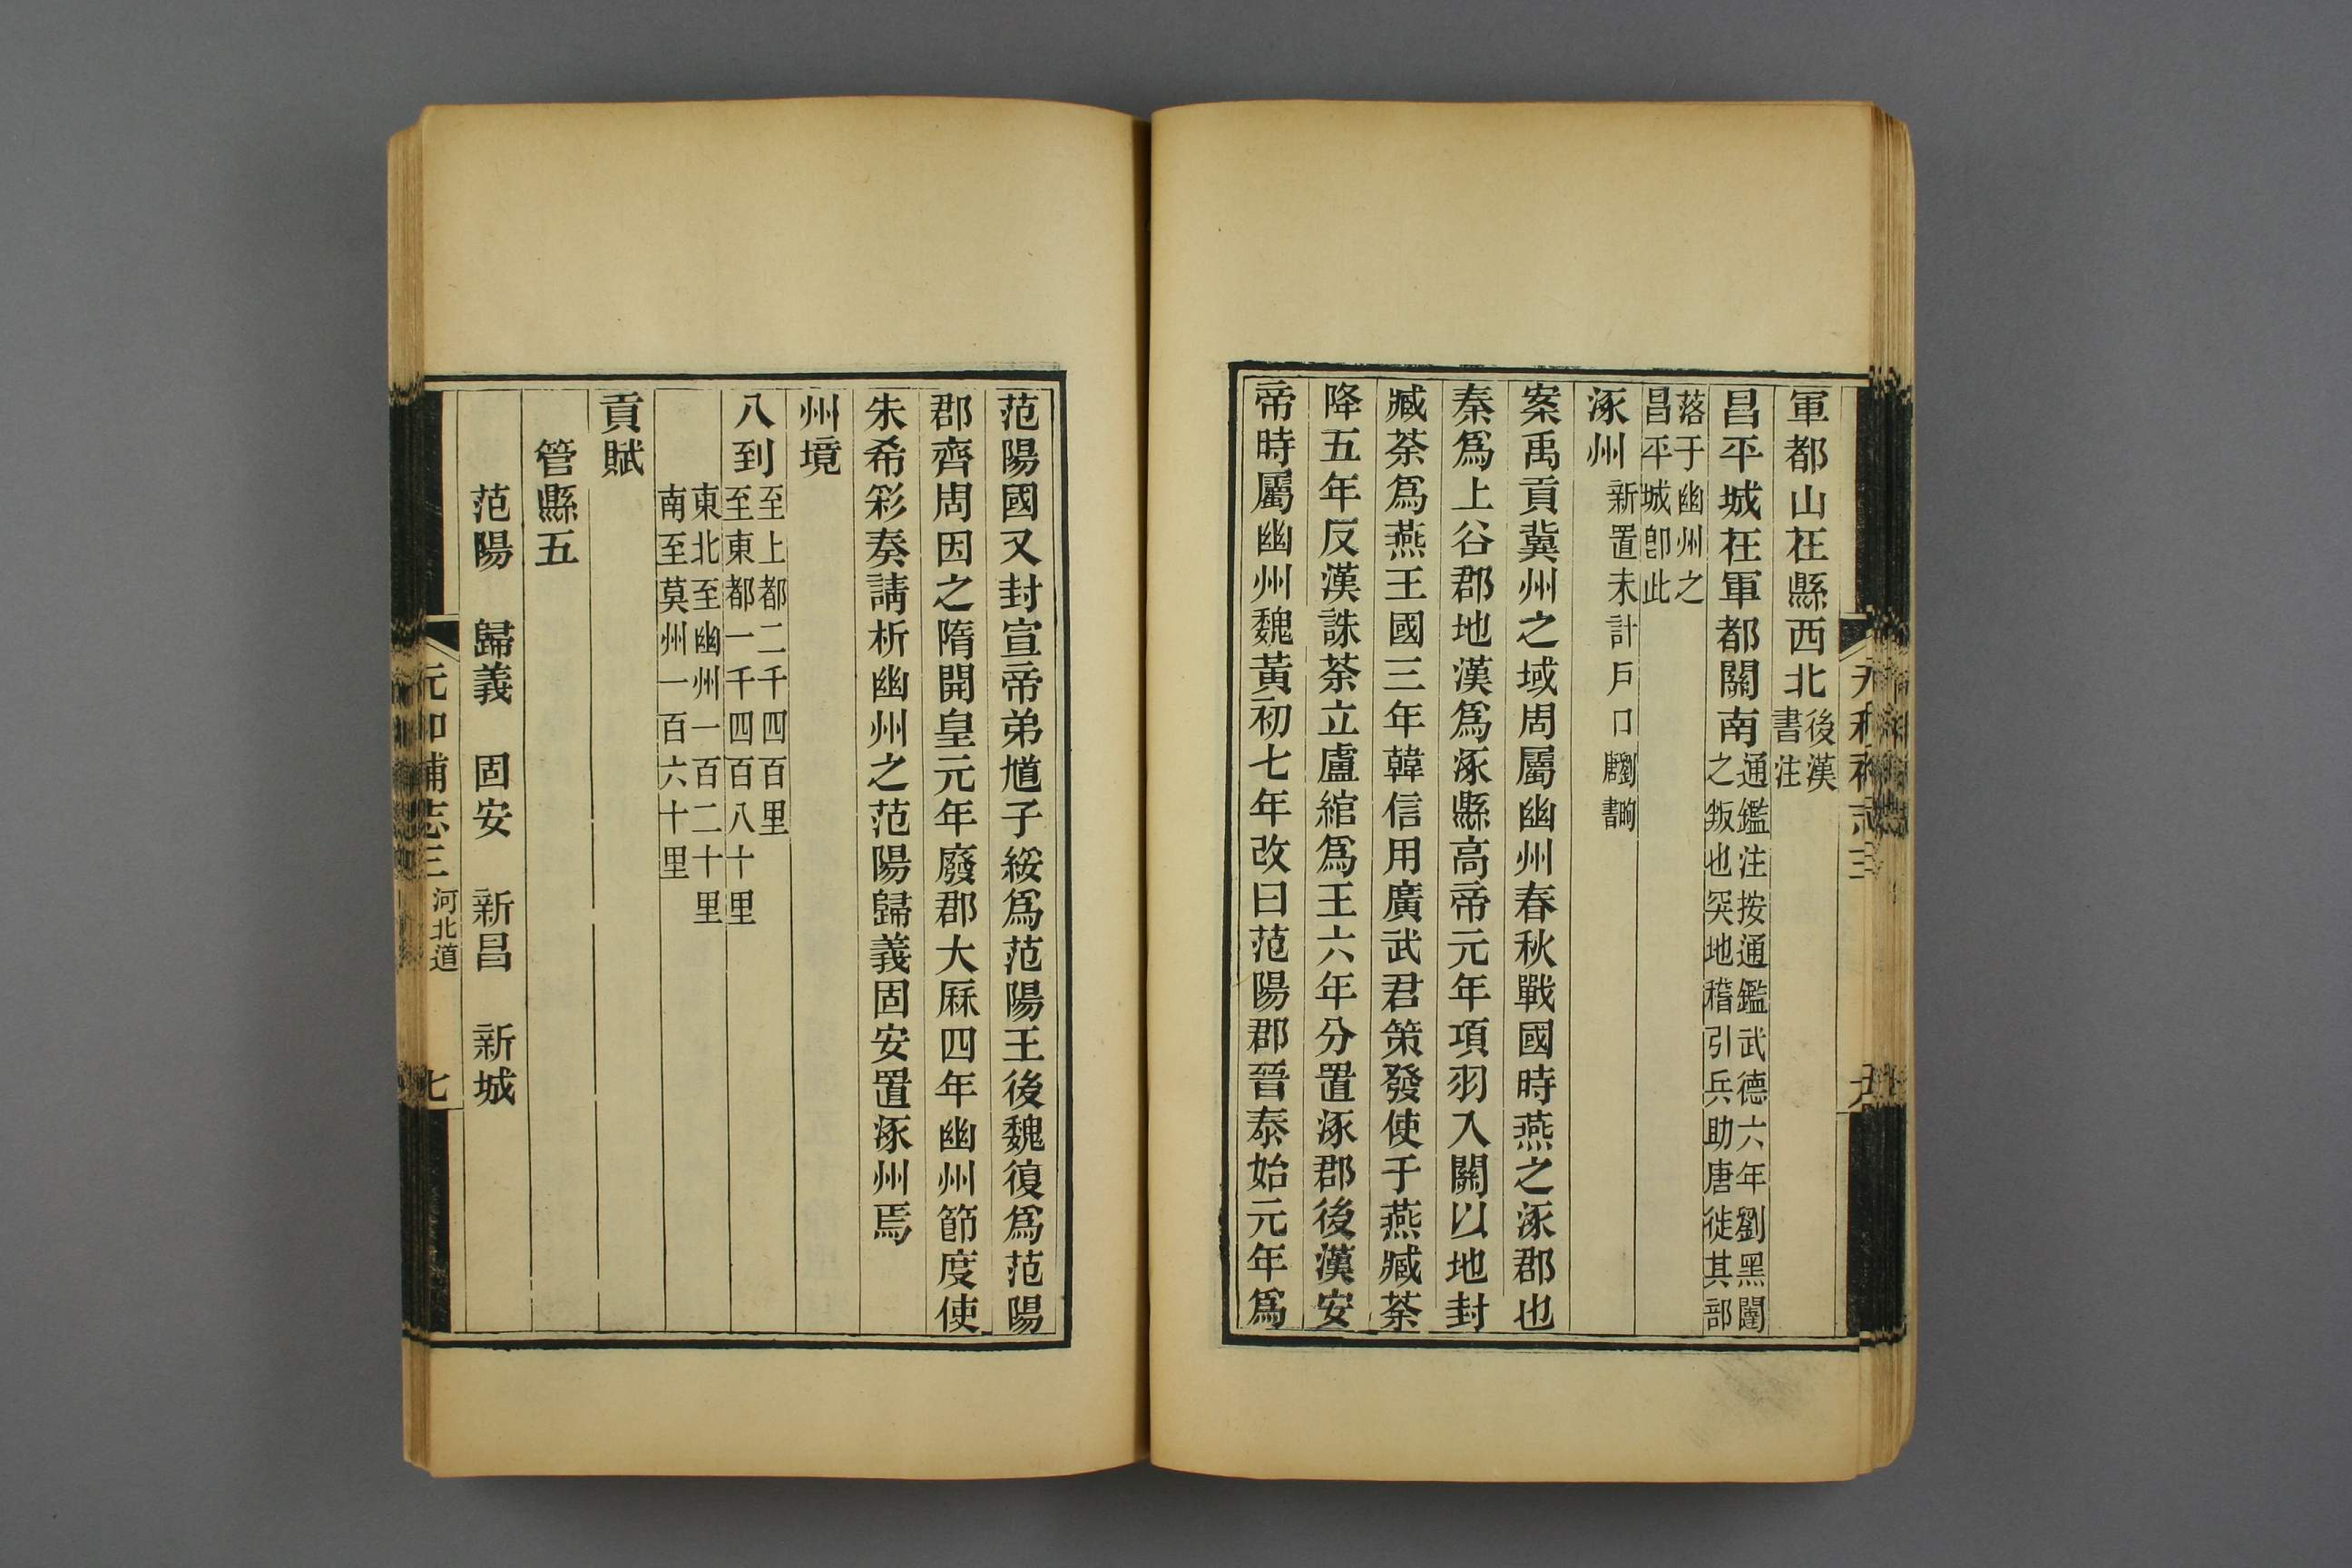 軍都山在縣西北後漢書注
昌平城在軍都關南通鑑注按通鑑武德六年劉黑闥之叛也突地稽引兵助唐徙其部
落于幽州之昌平城卽此
涿州新置未計戶口劉昫唐書
案禹貢冀州之域周屬幽州春秋戰國時燕之涿郡也
秦爲上谷郡地漢爲涿縣高帝元年項羽入關以地封
臧荼爲燕王國三年韓信用廣武君策發使于燕臧荼
降五年反漢誅荼立盧綰爲王六年分置涿郡後漢安
帝時屬幽州魏黃初七年改曰范陽郡晉泰始元年爲
范陽國又封宣帝弟馗子綏爲范陽王後魏復爲范陽
郡齊周因之隋開皇元年廢郡大厤四年幽州節度使
朱希彩奏請析幽州之范陽歸義固安置涿州焉
州境
八到至上都二千四百里至東都一千四百八十里
東北至幽州一百二十里南至莫州一百六十里
貢賦
管縣五
范陽　歸義　固安　新昌　新城
元和補志三 河北道 七